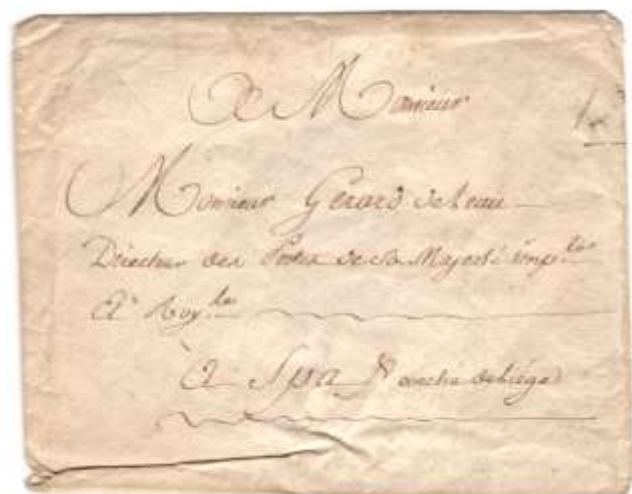 A Monsieur
Monsieur Gerard deleau
Directeur des Postes de Sa Majesté imp.le
Et Roy.le
à Spa deliége